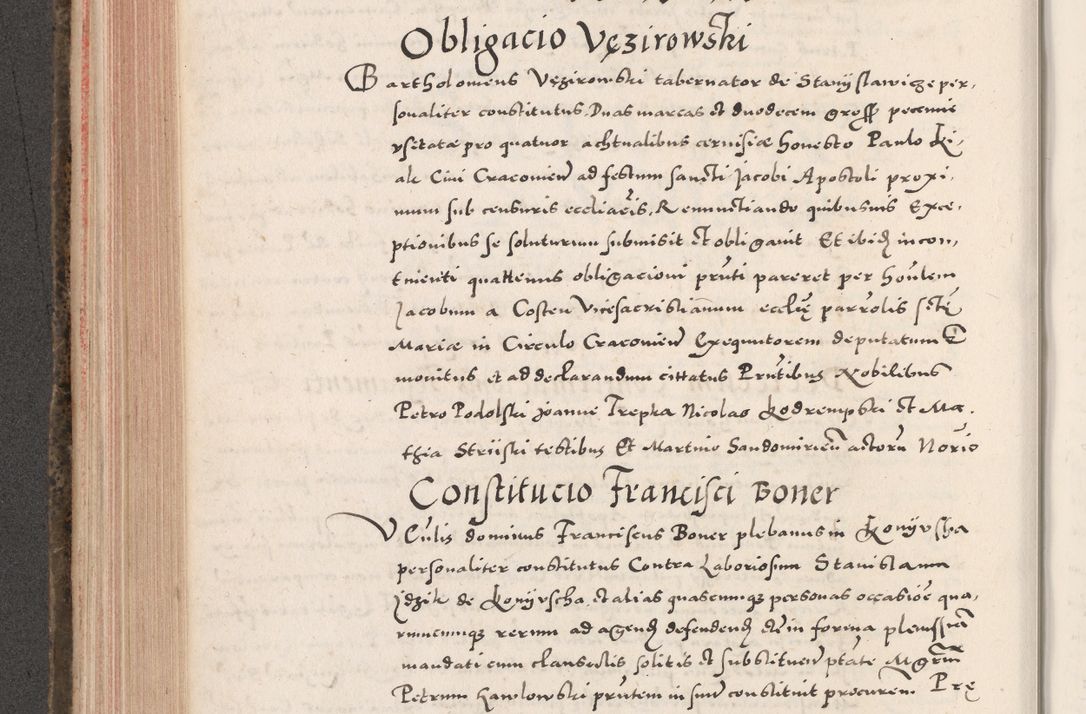 Obligacio Vęzirowski
Bartholomeus Vęzirowski tabernator de Stanyslawicze per,
sonaliter constitutus, Duas marcas et duodecem gross pecunie
vsitatæ pro quatuor achtualibus ceruisiæ honesto Paulo Ki,
alk Ciui Cracouien ad festum sancti Jacobi Apostoli proxi,
mum sub censuris eccliacis, Renunctiando quibusuis Exce,
ptionibus se soluturum submisit et obligauit Et ibid incon,
tinenti quattenus obligacioni pnti pareret per honlem
Jacobum a Costen Vicesacristianum ecclię parrolis scte
Mariæ in Circulo Cracouien Exequutorem deputatum E
monitus et ad declarandum cittatus Pntibus Nobilibus
Petro Podolski Joanne Trepka Nicolao Kodrempski et Ma,
thia Strijski testibus Et Martino Sandomirien actorũ Norio
Constitucio Francisci Boner
Venlis dominus Franciscus Boner plebanus in Konyvscha
personaliter constitutus Contra Laboriosum Stanislaum
Jdzik de Konyvscha, et alias quascumq personas occasioe qua,
rumcumq rerum ad agend defendend etc in forma plenissien
mandati cum clausulis solitis et substituen ptate Mgrm
Petrum Hawlowski pntem in sin constituit procurem Prę